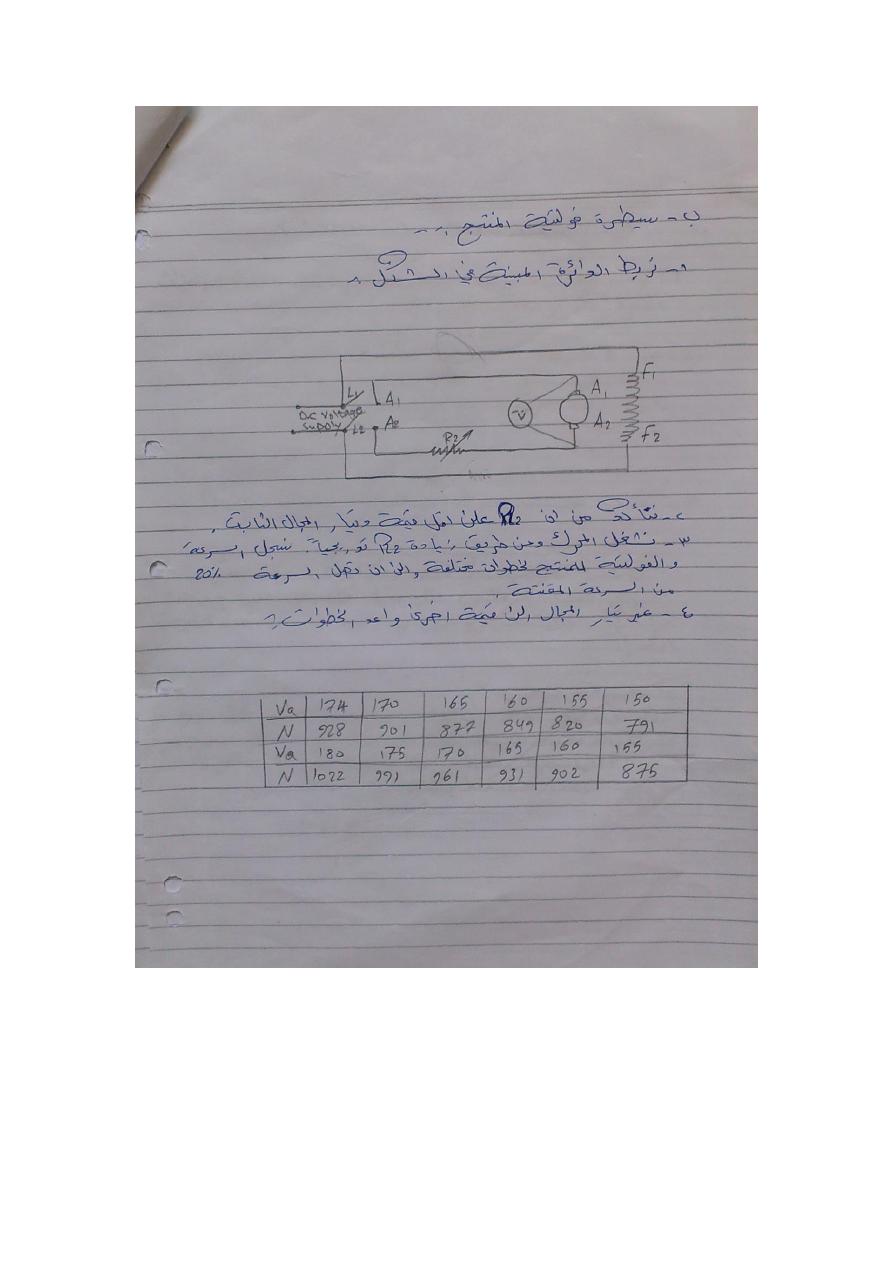 ب - سيطرة فولتية المنتج :-
١- نربط الدائرة المبينة في الشكل :
F1
L1
A1
A1
D.C Voltage
V
supply
L2
A2
A2
R2
F2
٢- نتأكد من ان R2 على اقل قيمة وتيار المجال ثابت .
٣- نشغل المحرك وعن طريق زيادة R2 تدريجياً . نسجل السرعة
والفولتية للمنتج لخطوات مختلفة والى ان تقل السرعة 20%
من السرعة المقننة .
٤- غير تيار المجال الى قيمة اخرى واعد الخطوات :
Va 174 170 165 160 155 150
N 928 901 877 849 820 791
Va 180 175 170 165 160 155
N 1022 991 961 931 902 875